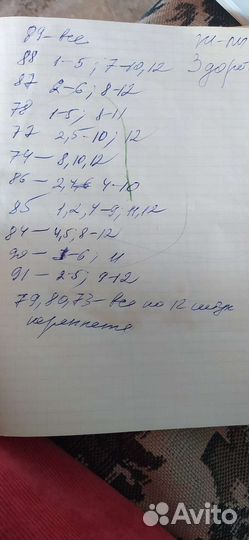 89 - все
ж-лы
88 1-5; 7-10, 12
Здоро
87 2-6; 8-12
78 1-5; 8-11
77 2,5-10; 12
74 - 8, 10, 12
86 - 2, 4-10
85 1, 2, 4-9; 11, 12
84 - 4, 5, 8-12
90 - 6; 11
91 - 2-5; 9-12
79, 80, 73 - все по 12 штук
Avito